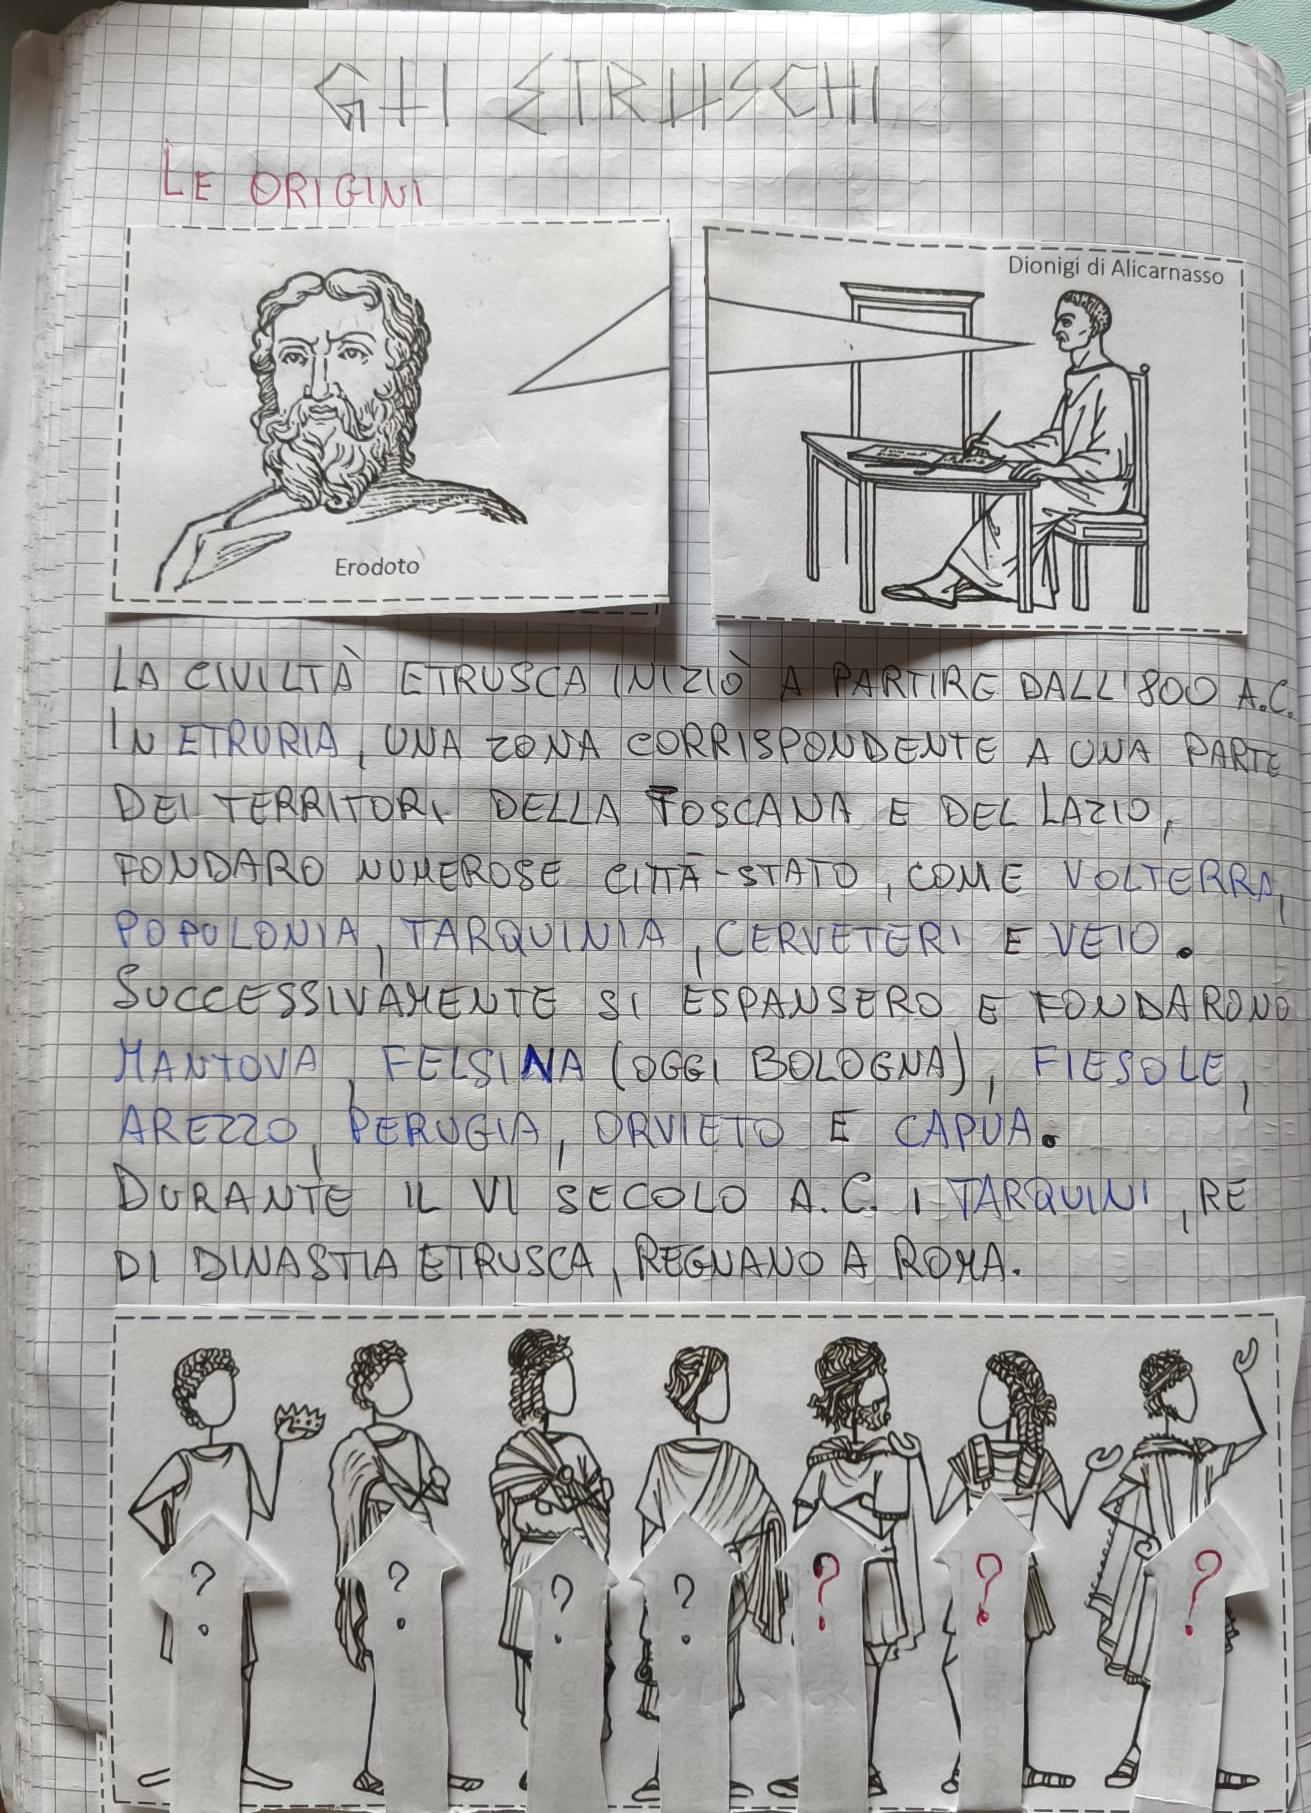 GLI ETRUSCHI
LE ORIGINI
Erodoto
Dionigi di Alicarnasso
LA CIVILTÀ ETRUSCA INIZIÒ A PARTIRE DALL'800 A.C.
IN ETRURIA, UNA ZONA CORRISPONDENTE A UNA PARTE
DEI TERRITORI DELLA TOSCANA E DEL LAZIO,
FONDARO NUMEROSE CITTÀ-STATO, COME VOLTERRA,
POPULONIA, TARQUINIA, CERVETERI E VEIO.
SUCCESSIVAMENTE SI ESPANSERO E FONDARONO
MANTOVA, FELSINA (OGGI BOLOGNA), FIESOLE,
AREZZO, PERUGIA, ORVIETO E CAPUA.
DURANTE IL VI SECOLO A.C. I TARQUINI, RE
DI DINASTIA ETRUSCA, REGNANO A ROMA.
? ? ? ? ? ? ?